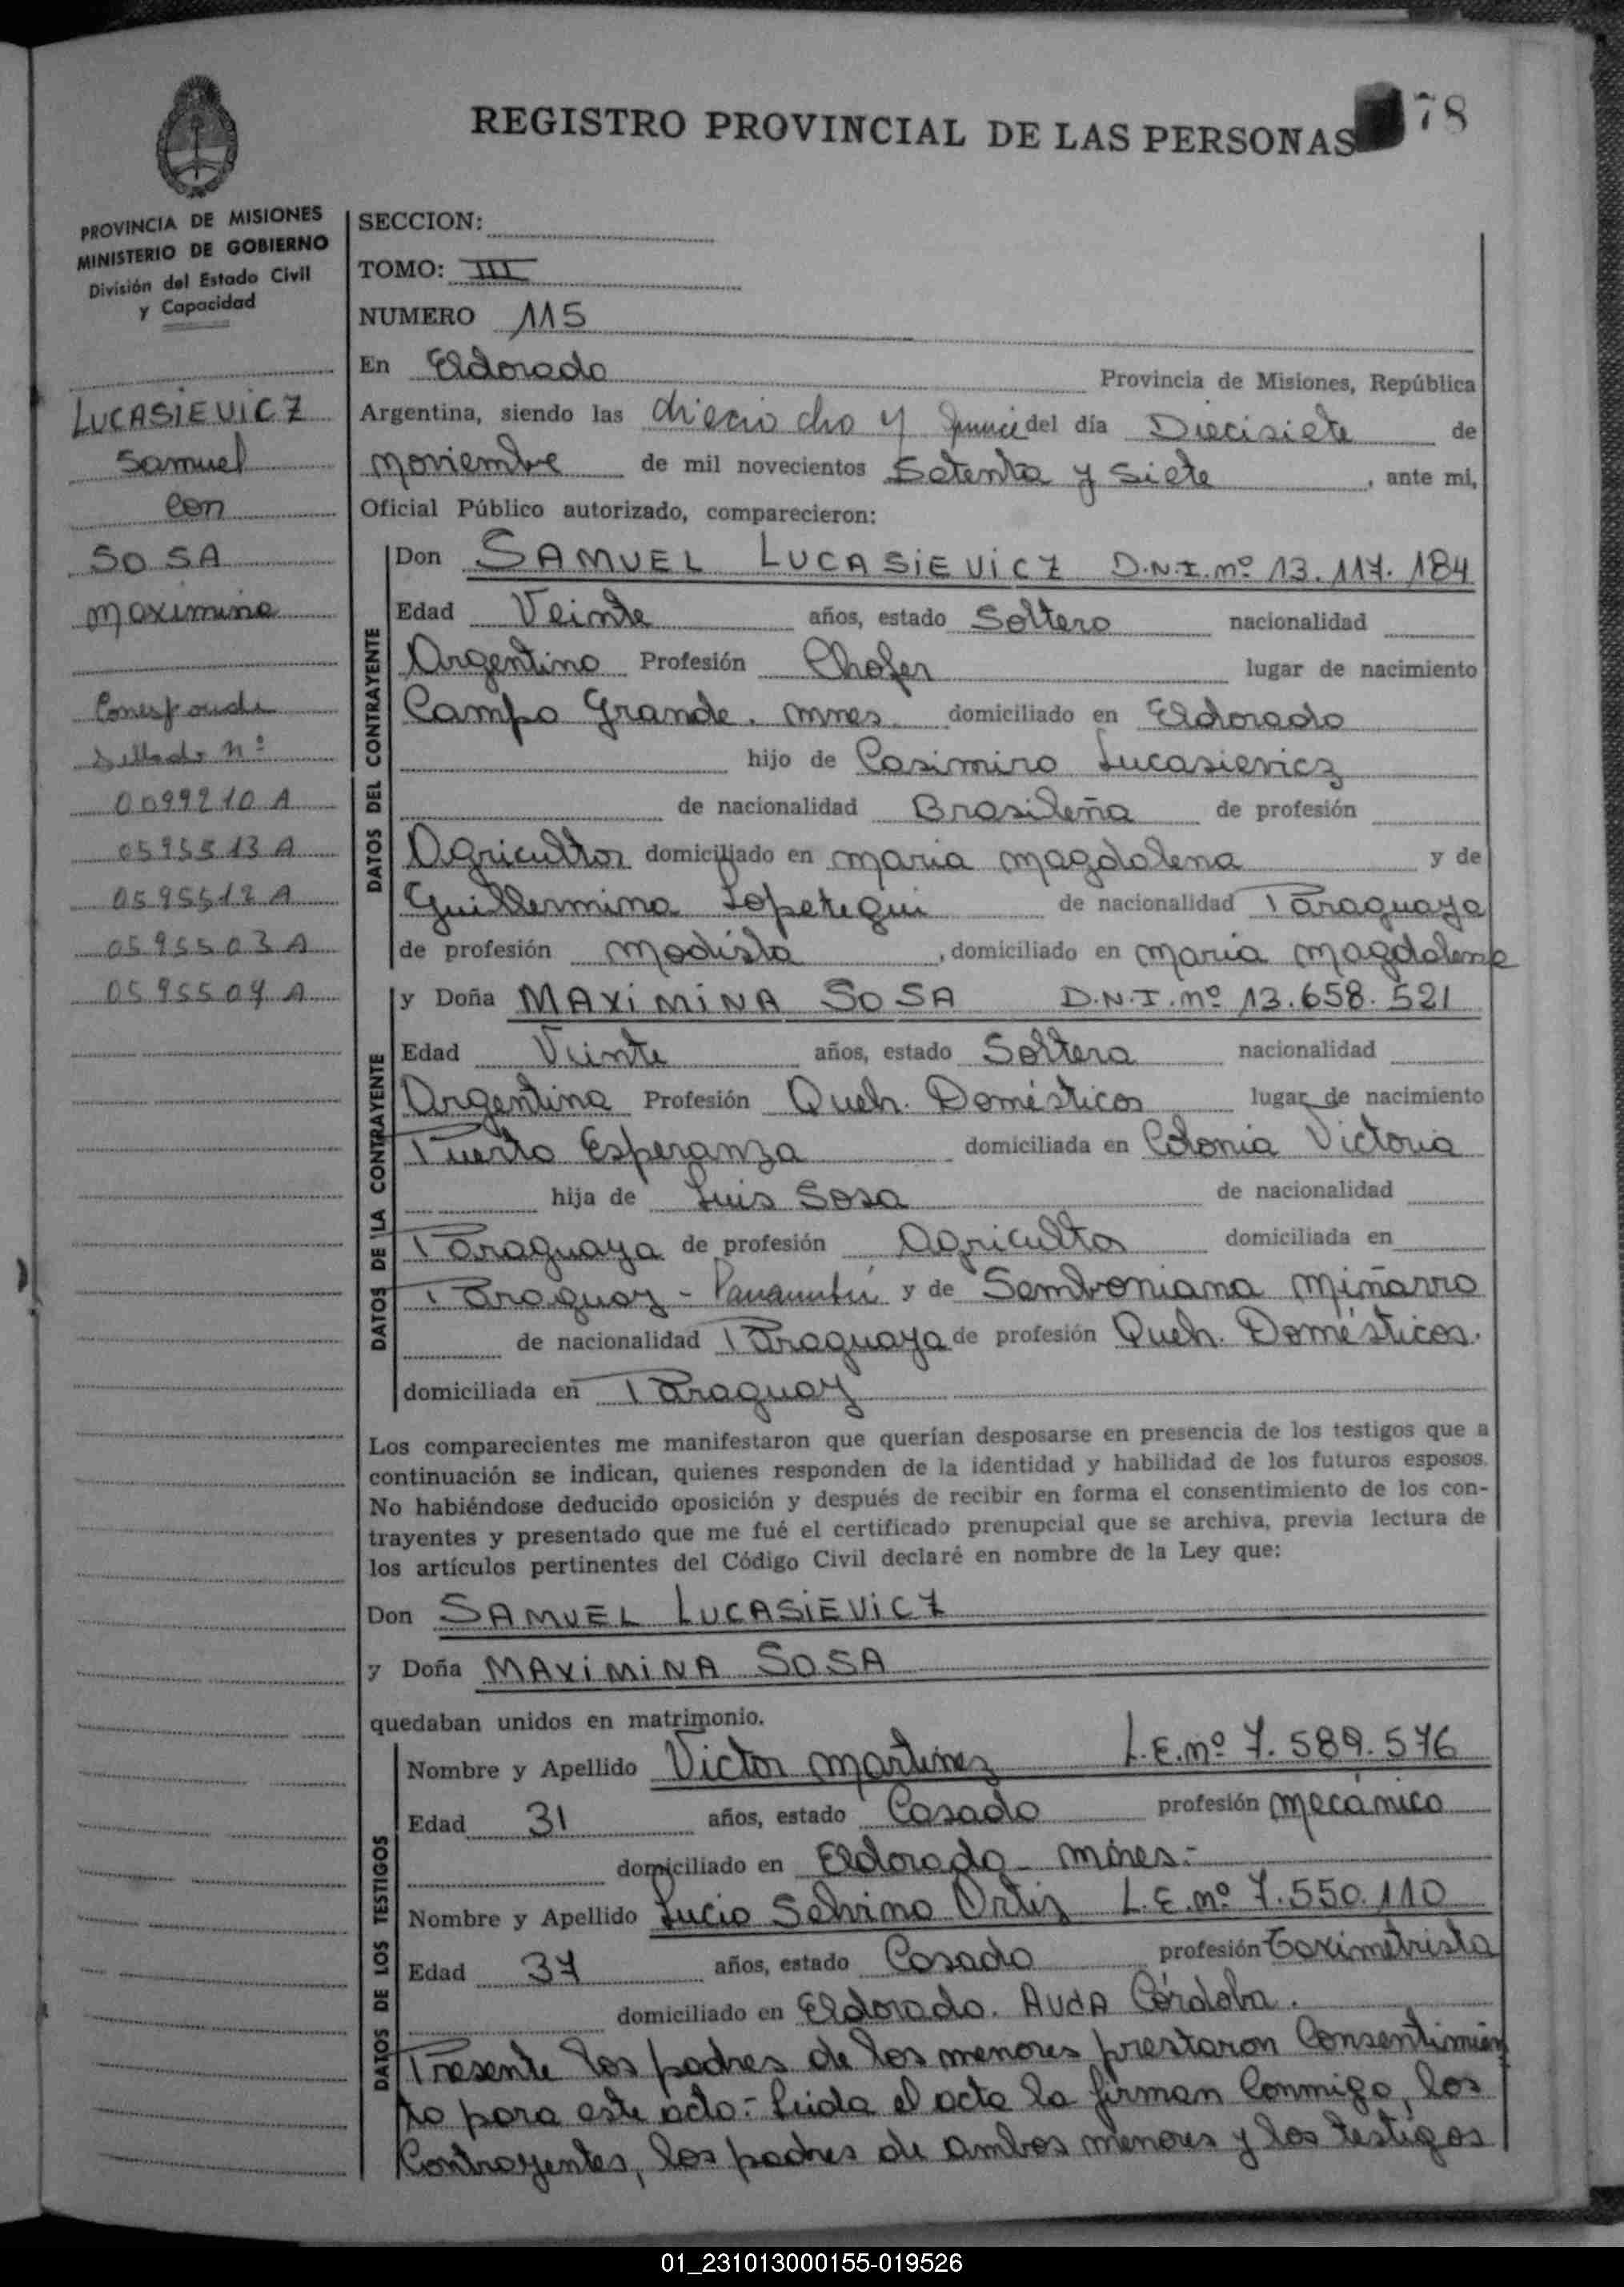 REGISTRO PROVINCIAL DE LAS PERSONAS
78
PROVINCIA DE MISIONES
MINISTERIO DE GOBIERNO
División del Estado Civil
y Capacidad
LUCASIEVICZ
Samuel
con
SOSA
Maximina
Corresponde
Sellado Nº
0099210 A
0595513 A
0595512 A
0595503 A
0595504 A
SECCION:
TOMO: III
NUMERO 115
En Eldorado Provincia de Misiones, República
Argentina, siendo las dieciocho y quince del día Diecisiete de
noviembre de mil novecientos Setenta y Siete, ante mi,
Oficial Público autorizado, comparecieron:
DATOS DEL CONTRAYENTE
Don SAMUEL LUCASIEVICZ D.N.I. nº 13.117.184
Edad Veinte años, estado Soltero nacionalidad
Argentino Profesión Chofer lugar de nacimiento
Campo Grande. Mnes. domiciliado en Eldorado
hijo de Casimiro Lucasievicz
de nacionalidad Brasileña de profesión
Agricultor domiciliado en Maria Magdalena y de
Guillermina Lopetegui de nacionalidad Paraguaya
de profesión Modista, domiciliado en Maria Magdalena
DATOS DE LA CONTRAYENTE
y Doña MAXIMINA SOSA D.N.I. nº 13.658.521
Edad Veinte años, estado Soltera nacionalidad
Argentina Profesión Queh. Domésticos lugar de nacimiento
Puerto Esperanza domiciliada en Colonia Victoria
hija de Luis Sosa de nacionalidad
Paraguaya de profesión Agricultor domiciliada en
Paraguay - y de Semboniana Miñarro
de nacionalidad Paraguaya de profesión Queh. Domésticos.
domiciliada en Paraguay
Los comparecientes me manifestaron que querían desposarse en presencia de los testigos que a
continuación se indican, quienes responden de la identidad y habilidad de los futuros esposos.
No habiéndose deducido oposición y después de recibir en forma el consentimiento de los con-
trayentes y presentado que me fué el certificado prenupcial que se archiva, previa lectura de
los artículos pertinentes del Código Civil declaré en nombre de la Ley que:
Don SAMUEL LUCASIEVICZ
y Doña MAXIMINA SOSA
quedaban unidos en matrimonio.
DATOS DE LOS TESTIGOS
Nombre y Apellido Victor Martinez L.E. nº 7.589.576
Edad 31 años, estado Casado profesión mecánico
domiciliado en Eldorado - Mnes.-
Nombre y Apellido Lucio Selvino Ortiz L.E. nº 7.550.110
Edad 37 años, estado Casado profesión Taximetrista
domiciliado en Eldorado. AVdA Córdoba.
Presente los padres de los menores prestaron Consentimien
to para este acto.- Leida el acta la firman Conmigo, los
Contrayentes, los padres de ambos menores y los testigos
01_231013000155-019526